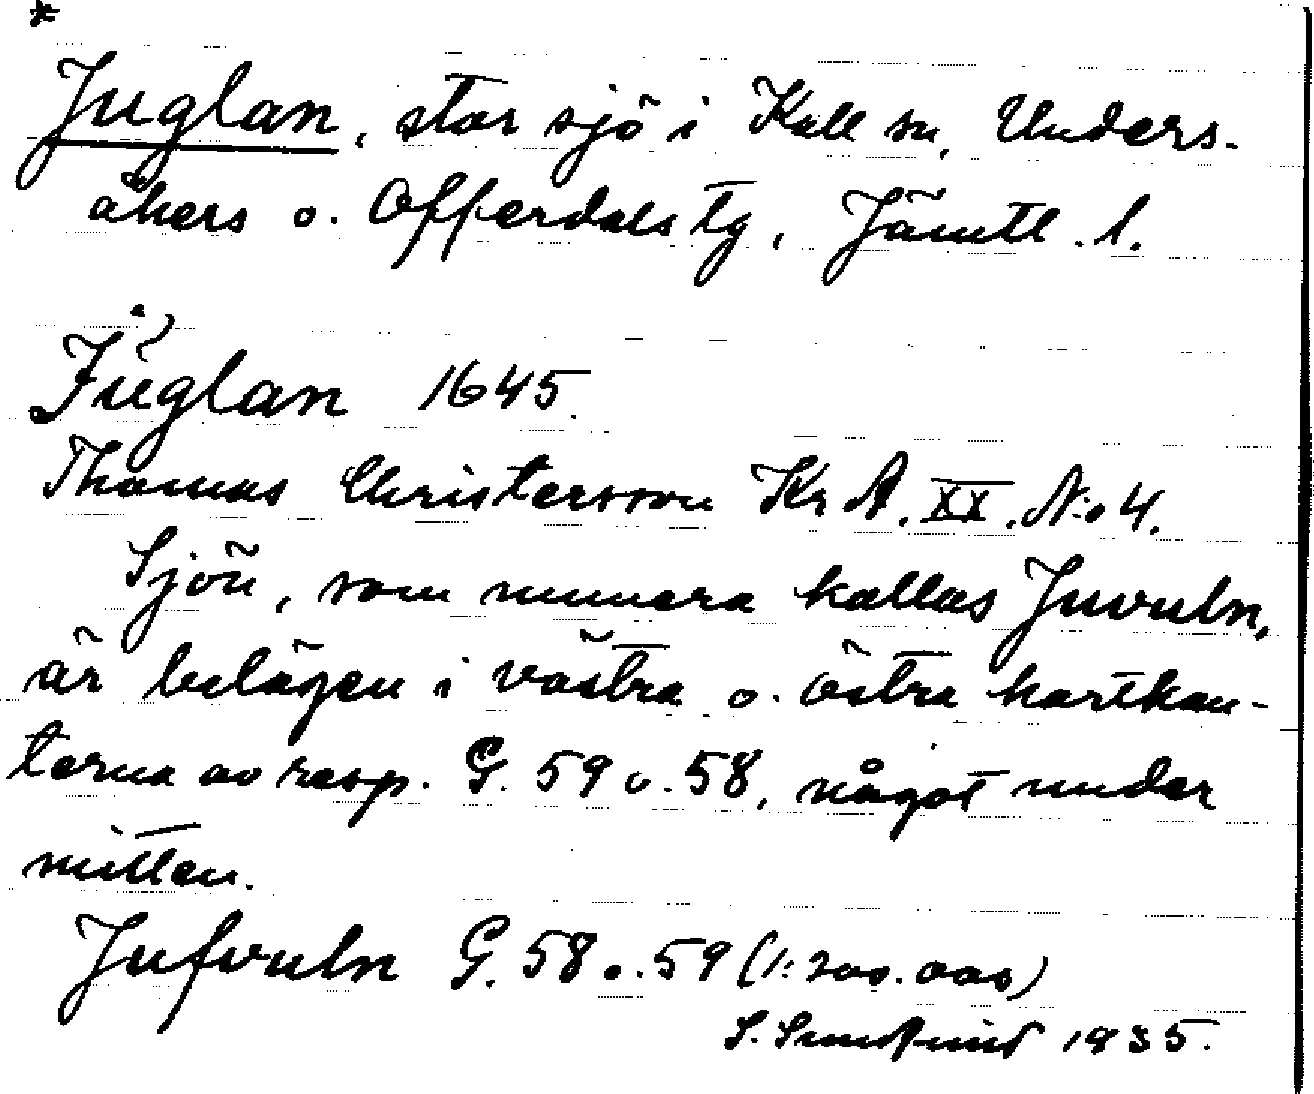 *
Juglan, stor sjö i Kall sn, Unders-
åkers o. Offerdals tg, Jämtl. l.
Jüglan 1645.
Thomas Christersson Kr A. XX. N:o 4.
Sjön, som numera kallas Juvuln,
är belägen i västra o. östra kartkan-
terna av resp. G. 59 o. 58, något under
mitten.
Jufvuln G. 58 o. 59 (1: 200.000)
S. 1935.